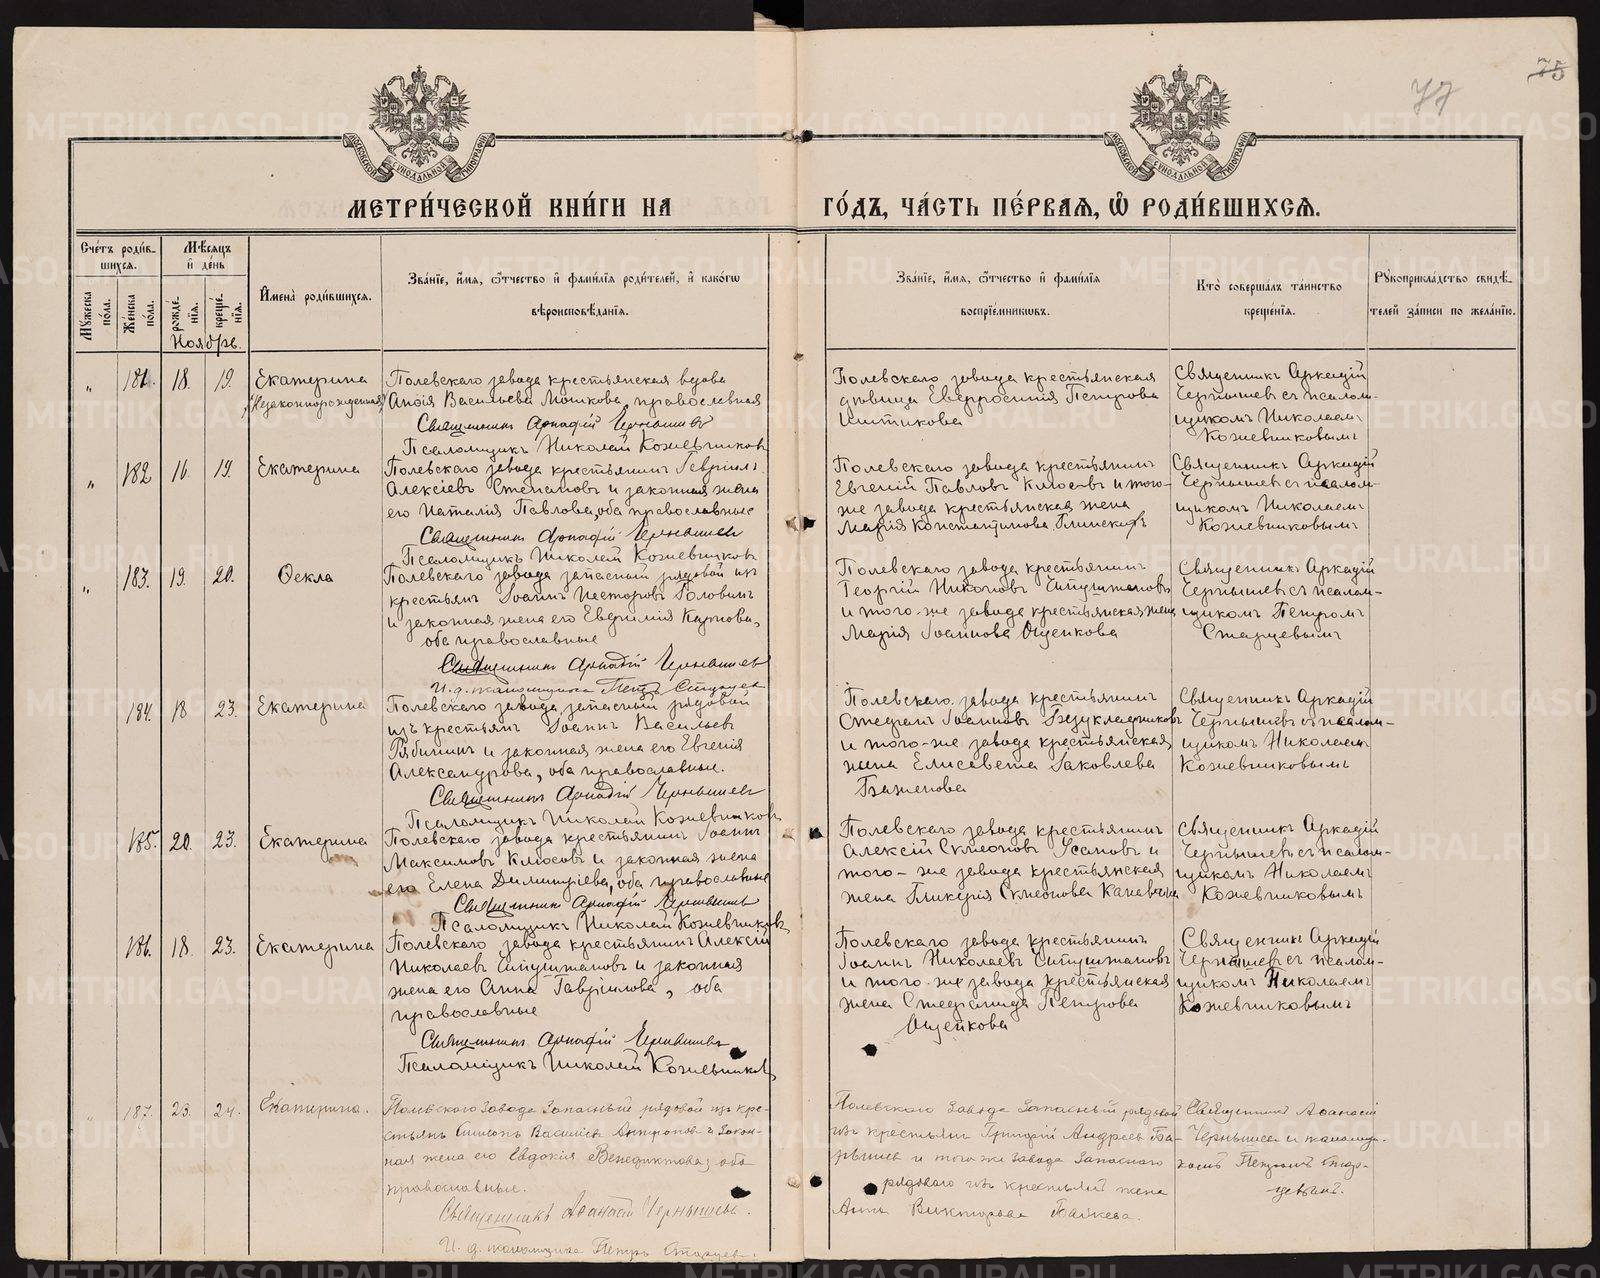 77
75
МОСКОВСКОЙ СѴНОДАЛЬНОЙ ТИПОГРАФІИ
МОСКОВСКОЙ СѴНОДАЛЬНОЙ ТИПОГРАФІИ
МЕТРИ́ЧЕСКОЙ КНИ́ГИ НА
ГО́ДЪ, ЧА́СТЬ ПЕ́РВАЯ, Ѽ РОДИ́ВШИХСЯ.
Сче́тъ роди́в-
шихся.
Мѣ́сяцъ
и҆ де́нь
Мꙋ́жеска
по́ла.
Же́нска
по́ла.
рожде́-
нїя.
креще́-
нїя.
И҆мена̀ роди́вшихся.
Зва́нїе, и҆́мя, ѻ҆́тчество и҆ фами́лїя роди́телей, и҆ како́гѡ
вѣроисповѣ́данїя.
Зва́нїе, и҆́мя, ѻ҆́тчество и҆ фами́лїя
воспрїе́мникѡвъ.
Кто̀ соверша́лъ та́инство
креще́нїя.
Рꙋкоприкла́дство свидѣ́-
телей за́писи по жела́нїю.
Ноябрь.
„ 181. 18. 19. Екатерина
(Незаконнорожденная)
Полевскаго завода крестьянская вдова
Васильева Мошкова, православная
Священникъ Аркадій Чернышевъ
Псаломщикъ Николай Кожевниковъ
Полевскаго завода крестьянская
дѣвица Евфросинія Петрова
Священникъ Аркадій
Чернышевъ съ псалом-
щикомъ Николаемъ
Кожевниковымъ
„ 182 16. 19. Екатерина
Полевскаго завода крестьянинъ Гавріилъ
Алексіевъ Степановъ и законная жена
его Наталія Павлова, оба православные
Священникъ Аркадій Чернышевъ
Псаломщикъ Николай Кожевниковъ
Полевскаго завода крестьянинъ
Евгеній Павловъ Клюсовъ и того-
же завода крестьянская жена
Марія Константинова
Священникъ Аркадій
Чернышевъ съ псалом-
щикомъ Николаемъ
Кожевниковымъ
„ 183. 19. 20. Ѳекла
Полевскаго завода запасный рядовой изъ
крестьянъ Іоаннъ Несторовъ Головинъ
и законная жена его Евфимія Карпова,
оба православные
Священникъ Аркадій Чернышевъ
И. д. псаломщика Петръ Старцевъ
Полевскаго завода крестьянинъ
Георгій Никоновъ Чипуштановъ
и того-же завода крестьянская жена
Марія Іоаннова Ощепкова
Священникъ Аркадій
Чернышевъ съ псалом-
щикомъ Петромъ
Старцевымъ
184. 18 23. Екатерина
Полевскаго завода запасный рядовой
изъ крестьянъ Іоаннъ Васильевъ
Рябининъ и законная жена его Евгенія
Александрова, оба православные.
Священникъ Аркадій Чернышевъ
Псаломщикъ Николай Кожевниковъ
Полевскаго завода крестьянинъ
Стефанъ Іоанновъ Безукладниковъ
и того-же завода крестьянская
жена Елисавета Іаковлева
Баженова
Священникъ Аркадій
Чернышевъ съ псалом-
щикомъ Николаемъ
Кожевниковымъ
185. 20. 23. Екатерина
Полевскаго завода крестьянинъ Іоаннъ
Максимовъ Клюсовъ и законная жена
его Елена Димитріева, оба православные
Священникъ Аркадій Чернышевъ
Псаломщикъ Николай Кожевниковъ
Полевскаго завода крестьянинъ
Алексій Симеоновъ и
того-же завода крестьянская
жена Гликерія Симеонова
Священникъ Аркадій
Чернышевъ съ псалом-
щикомъ Николаемъ
Кожевниковымъ
186. 18. 23. Екатерина
Полевскаго завода крестьянинъ Алексій
Николаевъ Чипуштановъ и законная
жена его Анна Гавріилова, оба
православные
Священникъ Аркадій Чернышевъ
Псаломщикъ Николай Кожевниковъ
Полевскаго завода крестьянинъ
Іоаннъ Николаевъ Чипуштановъ
и того-же завода крестьянская
жена Стефанида Петрова
Ощепкова
Священникъ Аркадій
Чернышевъ съ псалом-
щикомъ Николаемъ
Кожевниковымъ
„ 187. 23. 24. Екатерина.
Полевского Завода Запасный рядовой изъ кре-
стьянъ Симеонъ Василіевъ Антроповъ и закон-
ная жена его Евдокія Венедиктова, оба
православные.
Священникъ Аѳанасій Чернышевъ.
И. д. псаломщика Петръ Старцевъ.
Полевского Завода Запасный рядовой
изъ крестьянъ Григорій Андреевъ Ба-
и того же Завода Запасного
рядового изъ крестьянъ жена
Анна Викторова
Священникъ Аѳанасій
Чернышевъ и псаломщи-
комъ Петромъ Стар-
цевымъ.
METRIKI.GASO-URAL.RU